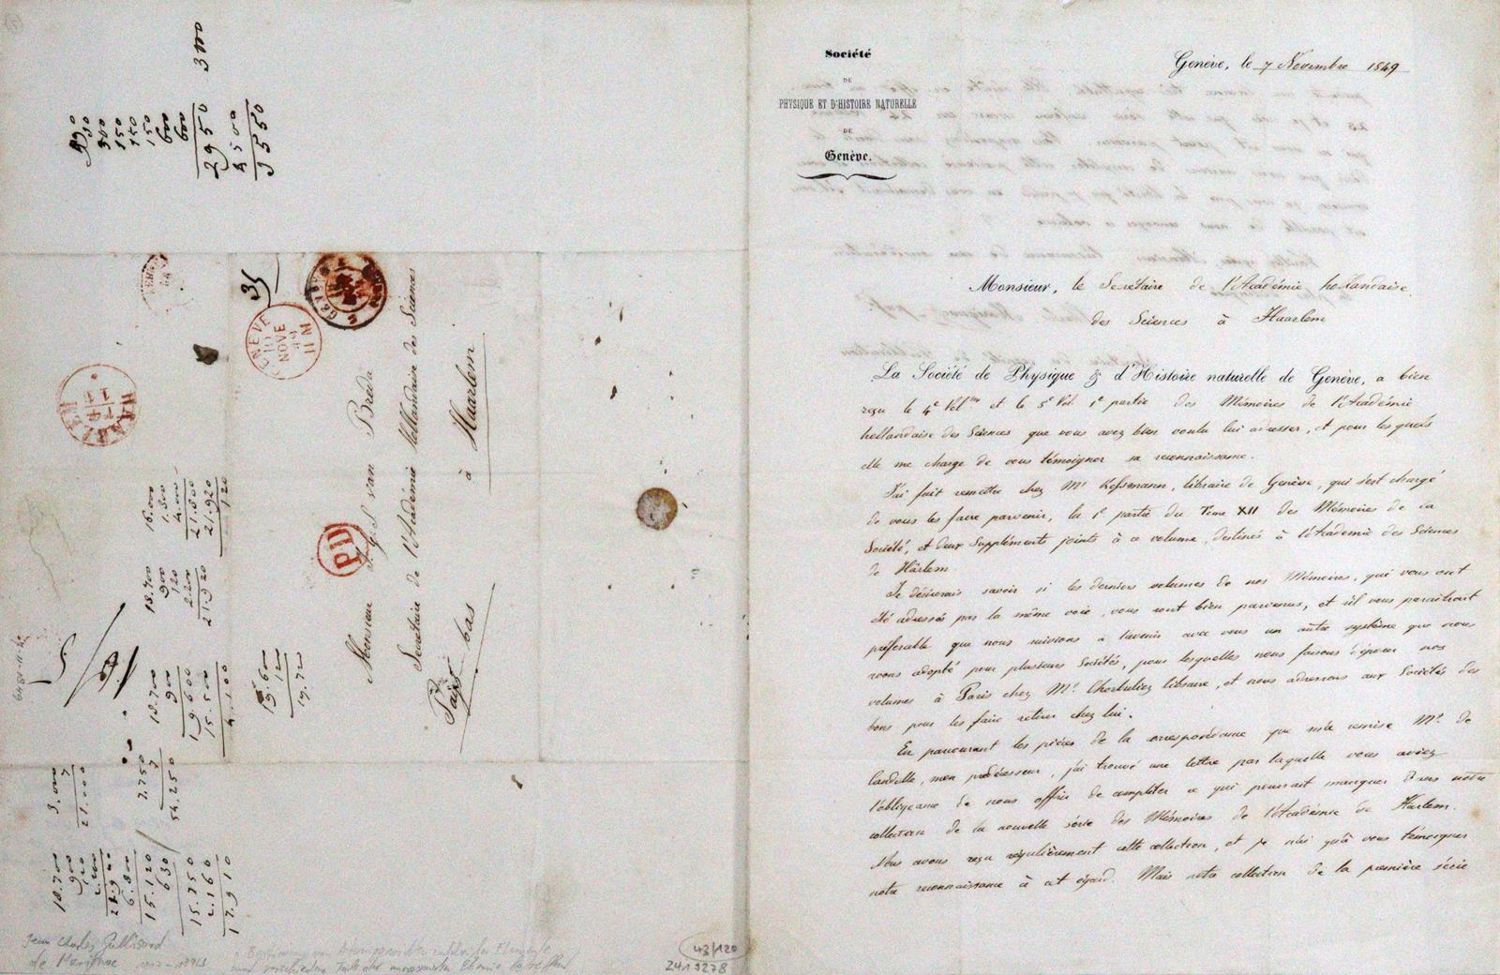 Société
DE
PHYSIQUE ET D'HISTOIRE NATURELLE
DE
Genève.
Genève, le 7 Novembre 1849
Monsieur, le Secrétaire de l'Académie hollandaise
des Sciences à Haarlem
La Société de Physique & d'Histoire naturelle de Genève, a bien
reçu le 4e Vol. et le 5e Vol. 1e partie des Mémoires de l'Académie
hollandaise des Sciences que vous avez bien voulu lui adresser, et pour lesquels
elle me charge de vous témoigner sa reconnaissance.
J'ai fait remettre chez Mr Kessmann, libraire de Genève, qui s'est chargé
de vous les faire parvenir, la 1e partie du Tome XII des Mémoires de la
Société, et deux Suppléments joints à ce volume, destinés à l'Académie des Sciences
de Härlem.
Je désirerais savoir si les derniers volumes de nos Mémoires, qui vous ont
été adressés par la même voie, vous sont bien parvenus, et s'il vous paraîtrait
préférable que nous suivions à l'avenir avec vous un autre système que nous
avons adopté pour plusieurs Sociétés, pour lesquelles nous faisons déposer nos
volumes à Paris chez Mr. Cherbuliez libraire, et nous adressons aux Sociétés des
bons pour les faire retirer chez lui.
En parcourant les pièces de la correspondance que m'a remise Mr. de
Candolle, mon prédécesseur, j'ai trouvé une lettre par laquelle vous aviez
l'obligeance de nous offrir de compléter ce qui pourrait manquer dans notre
collection de la nouvelle série des Mémoires de l'Académie de Harlem.
Nous avons reçu régulièrement cette collection, et je n'ai qu'à vous témoigner
notre reconnaissance à cet égard. Mais notre collection de la première série
Monsieur J.G.S. van Breda
Secrétaire de l'Académie Hollandaise des Sciences
à Haarlem
Pays bas
PD
GENEVE
10
NOVE
49
11 M
HAARLEM
35
300
150
150
150
600
600
2950
300
16.000
1.800
4.000
21.800
21.920
120
18.700
900
120
2200
21.920
18.700
900
19.600
15.500
4.100
19.60
12
19.72
3.000
7
21.000
7.750
7
54.250
18.700
900
6.800
15.120
630
15.750
2.160
17.910
Jean Charles Galissard
de Marignac
43/120
2419278